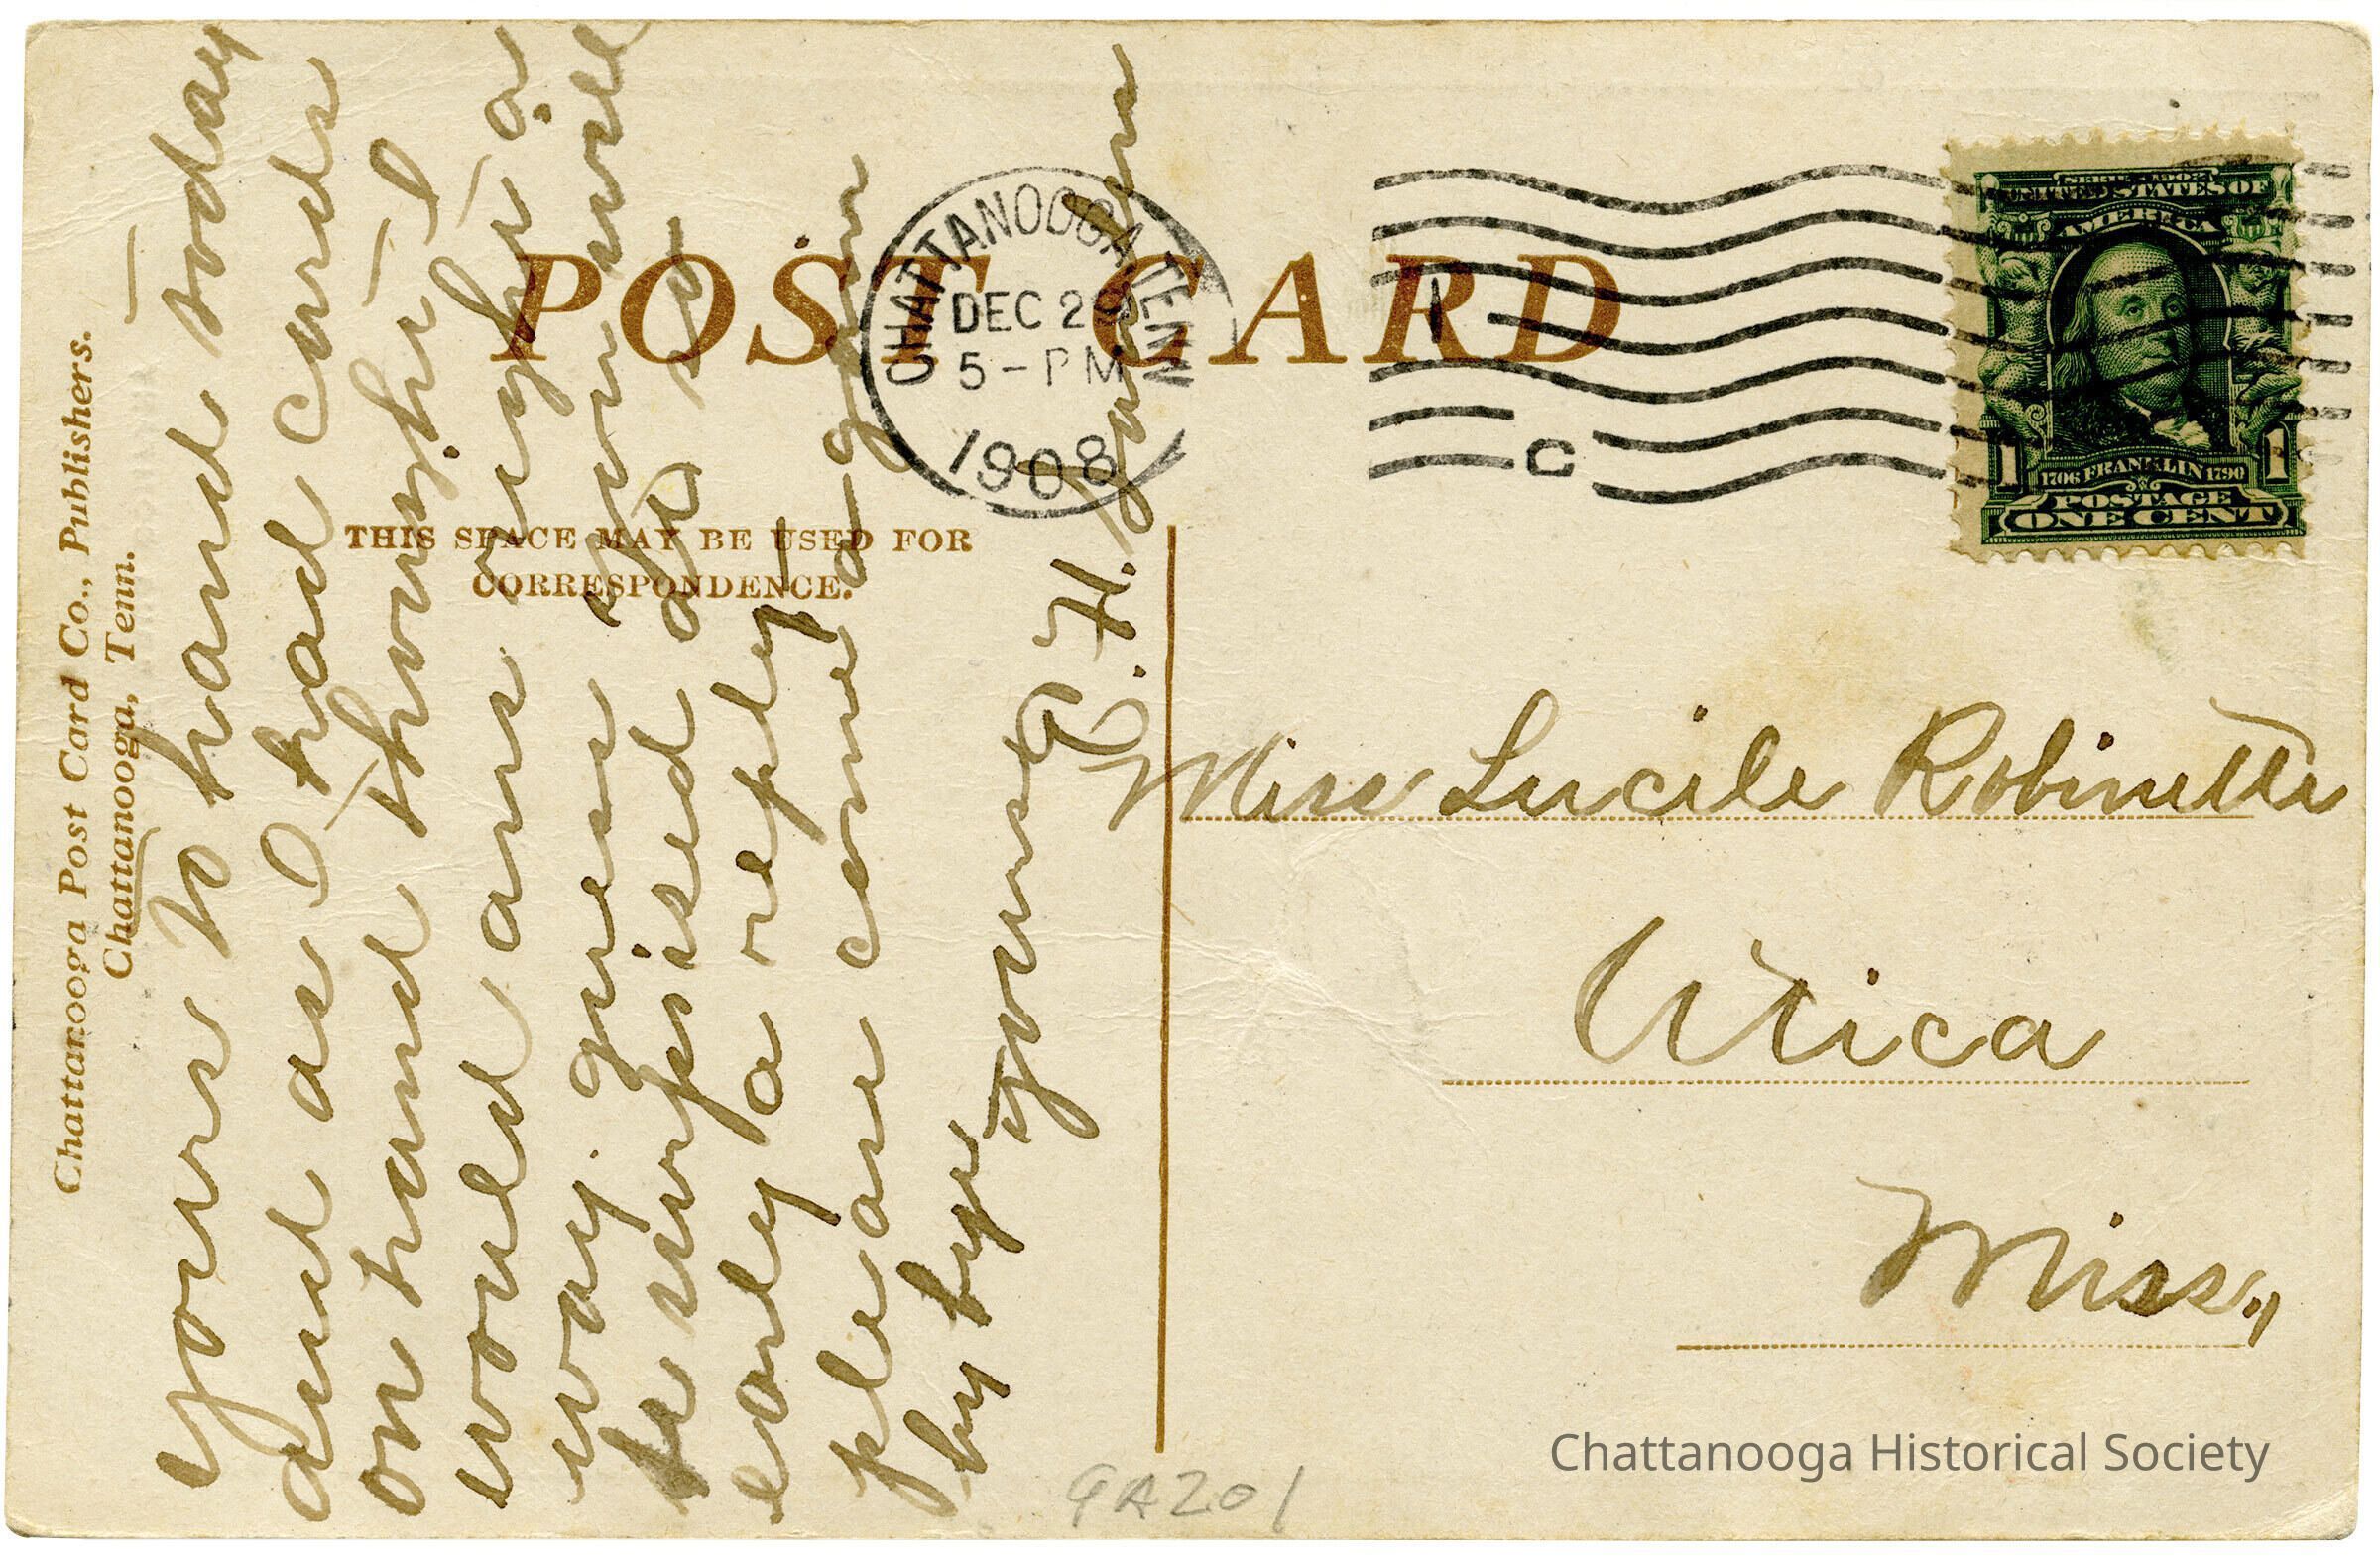 Chattanooga Post Card Co., Publishers.
Chattanooga, Tenn.
POST CARD
THIS SPACE MAY BE USED FOR
CORRESPONDENCE.
CHATTANOOGA TENN
DEC 2
5-PM
1908
C
SERIES 1902
UNITED STATES OF
AMERICA
1 1706 FRANKLIN 1790 1
POSTAGE
ONE CENT
Yours to hand today
and as I had cards
on hand thought I
would ans right a
way. guess you will
be surpised to get so
early a reply
please come again
by bye yours
C. H.
Miss Lucile Robinette
Utica
Miss,,
9A201
Chattanooga Historical Society